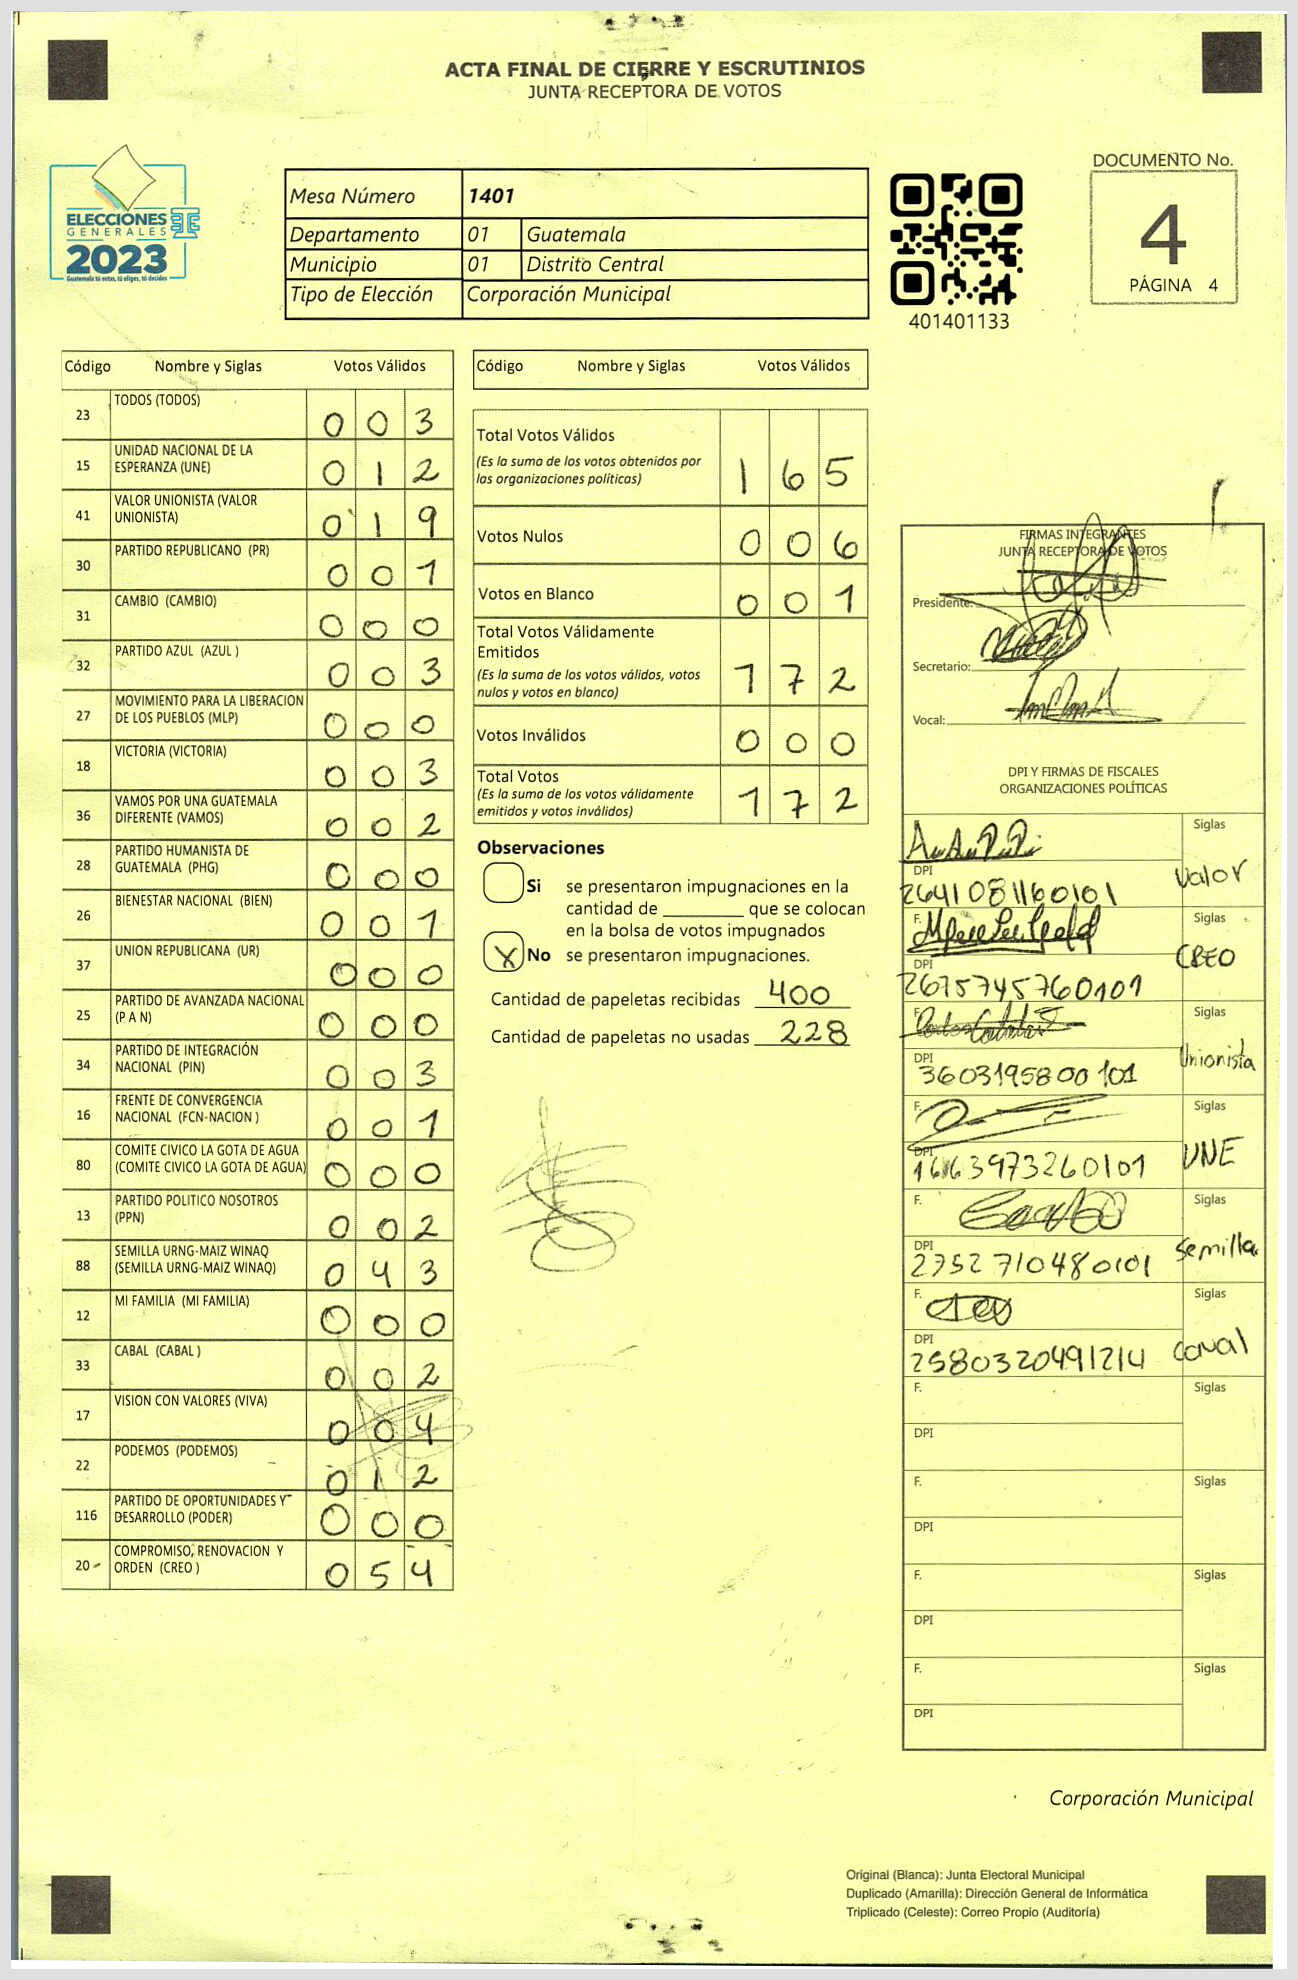 ACTA FINAL DE CIERRE Y ESCRUTINIOS
JUNTA RECEPTORA DE VOTOS
ELECCIONES
GENERALES
2023
Guatemala tú votas, tú eliges, tú decides
Mesa Número 1401
Departamento 01 Guatemala
Municipio 01 Distrito Central
Tipo de Elección Corporación Municipal
401401133
DOCUMENTO No.
4
PÁGINA 4
Código Nombre y Siglas Votos Válidos
23 TODOS (TODOS) 0 0 3
15 UNIDAD NACIONAL DE LA
ESPERANZA (UNE) 0 1 2
41 VALOR UNIONISTA (VALOR
UNIONISTA) 0 1 9
30 PARTIDO REPUBLICANO (PR) 0 0 1
31 CAMBIO (CAMBIO) 0 0 0
32 PARTIDO AZUL (AZUL ) 0 0 3
27 MOVIMIENTO PARA LA LIBERACION
DE LOS PUEBLOS (MLP) 0 0 0
18 VICTORIA (VICTORIA) 0 0 3
36 VAMOS POR UNA GUATEMALA
DIFERENTE (VAMOS) 0 0 2
28 PARTIDO HUMANISTA DE
GUATEMALA (PHG) 0 0 0
26 BIENESTAR NACIONAL (BIEN) 0 0 1
37 UNION REPUBLICANA (UR) 0 0 0
25 PARTIDO DE AVANZADA NACIONAL
(P A N) 0 0 0
34 PARTIDO DE INTEGRACIÓN
NACIONAL (PIN) 0 0 3
16 FRENTE DE CONVERGENCIA
NACIONAL (FCN-NACION ) 0 0 1
80 COMITE CIVICO LA GOTA DE AGUA
(COMITE CIVICO LA GOTA DE AGUA) 0 0 0
13 PARTIDO POLITICO NOSOTROS
(PPN) 0 0 2
88 SEMILLA URNG-MAIZ WINAQ
(SEMILLA URNG-MAIZ WINAQ) 0 4 3
12 MI FAMILIA (MI FAMILIA) 0 0 0
33 CABAL (CABAL ) 0 0 2
17 VISION CON VALORES (VIVA) 0 0 4
22 PODEMOS (PODEMOS) 0 1 2
116 PARTIDO DE OPORTUNIDADES Y
DESARROLLO (PODER) 0 0 0
20 COMPROMISO, RENOVACION Y
ORDEN (CREO ) 0 5 4
Código Nombre y Siglas Votos Válidos
Total Votos Válidos
(Es la suma de los votos obtenidos por
las organizaciones políticas) 1 6 5
Votos Nulos 0 0 6
Votos en Blanco 0 0 1
Total Votos Válidamente
Emitidos
(Es la suma de los votos válidos, votos
nulos y votos en blanco) 1 7 2
Votos Inválidos 0 0 0
Total Votos
(Es la suma de los votos válidamente
emitidos y votos inválidos) 1 7 2
Observaciones
Si se presentaron impugnaciones en la
cantidad de ________ que se colocan
en la bolsa de votos impugnados
X No se presentaron impugnaciones.
Cantidad de papeletas recibidas 400
Cantidad de papeletas no usadas 228
FIRMAS INTEGRANTES
JUNTA RECEPTORA DE VOTOS
Presidente:
Secretario:
Vocal:
DPI Y FIRMAS DE FISCALES
ORGANIZACIONES POLÍTICAS
Siglas
Valor
DPI
2641081160101
F. Siglas
CREO
DPI
2675745760101
F. Siglas
Unionista
DPI
3603195800101
F. Siglas
UNE
DPI
1663973260101
F. Siglas
Semilla
DPI
2752710480101
F. Siglas
DPI
2580320491214
F. Siglas
DPI
F. Siglas
DPI
F. Siglas
DPI
F. Siglas
DPI
Corporación Municipal
Original (Blanca): Junta Electoral Municipal
Duplicado (Amarilla): Dirección General de Informática
Triplicado (Celeste): Correo Propio (Auditoría)